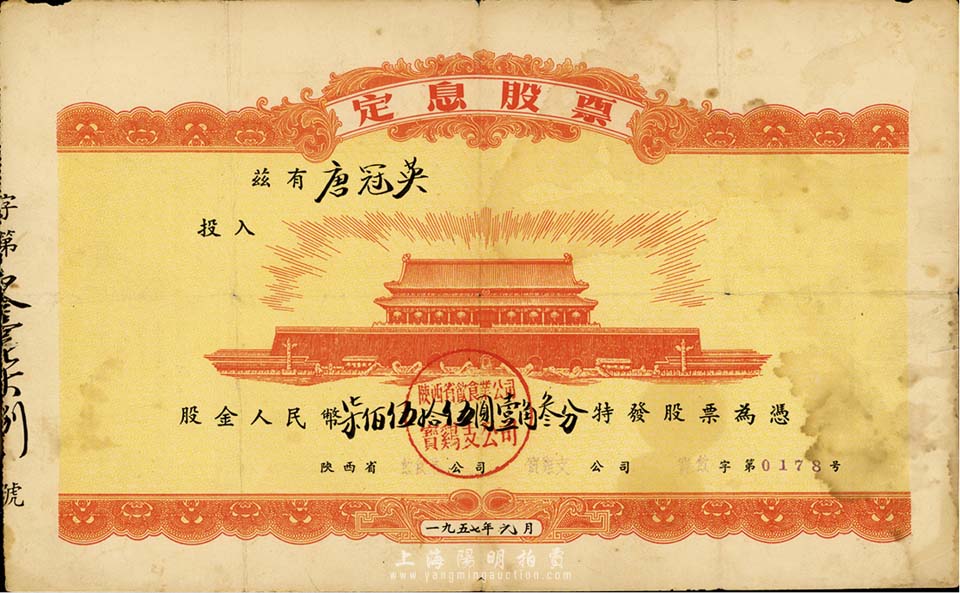 定息股票
茲有唐冠英
投入
陝西省飲食業公司
寶鷄支公司
股金人民幣柒佰伍拾伍圓壹角叁分特發股票為憑
陝西省 公司 支 公司 字第0178号
一九五七年元月
字第
號
上海陽明拍賣
www.yangmingauction.com